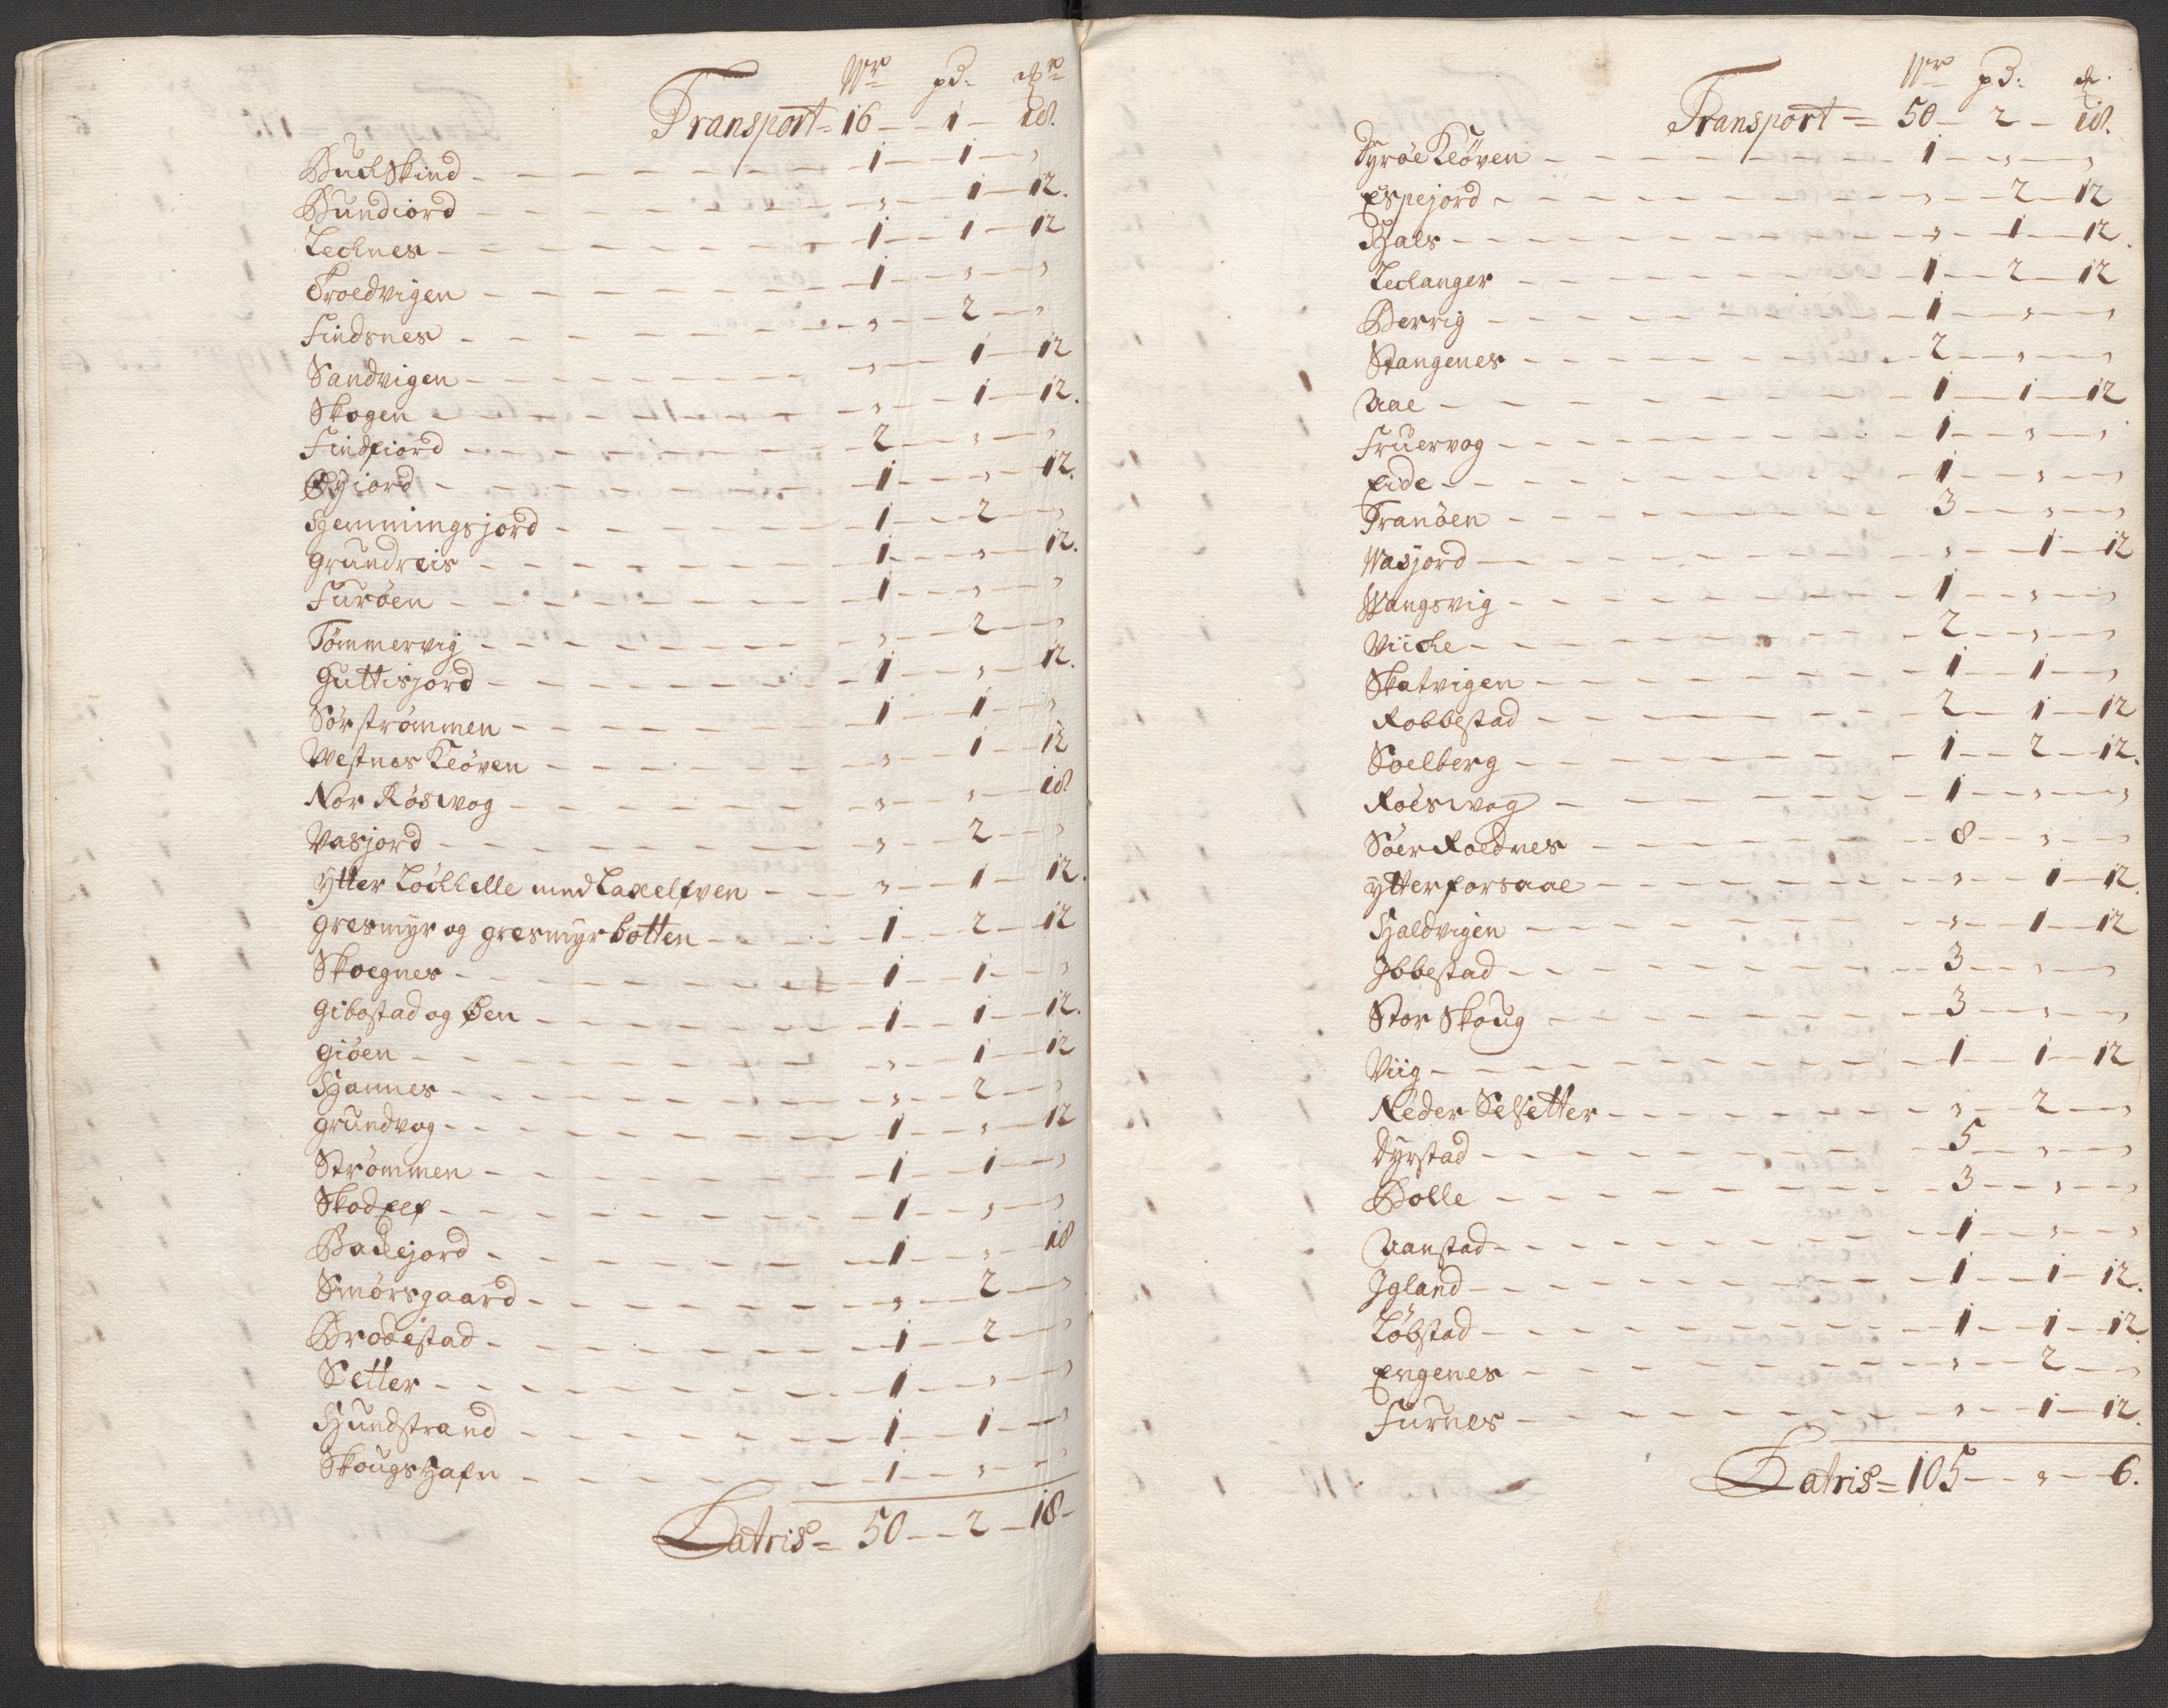 Wr pd: ℔r
Transport = 16 — 1 — 18.
BuchSkind — 1 — 1 — „
Bundiord — „ — 1 — 12.
Lechnes — 1 — 1 — 12
Troedvigen — 1 — „ — „
Findsnes — „ — 2 — „
Sandvigen — „ — 1 — 12
Skogen — „ — 1 — 12.
Findfiord — 2 — „ — „
Øyiord — 1 — „ — 12.
Hemmingsjord — 1 — 2 — „
Grundreis — 1 — „ — 12.
Furøen — 1 — „ — „
Tømmervig — „ — 2 — „
Guttisjord — 1 — „ — 12.
Sørstrømmen — 1 — 1 — „
Westnes Kløven — „ — 1 — 12
Nor Røswog — „ — „ — 18
Vasjord — „ — 2 — „
Ytter Løchelle med Laxelfven — „ — 1 — 12.
Gresmyr og gresmyrbotten — 1 — 2 — 12
Skoegnes — 1 — 1 — „
Gibostad og Øen — 1 — 1 — 12.
Giøen — „ — 1 — 12
Hannes — „ — 2 — „
Grundvog — 1 — „ — 12
Strømmen — 1 — 1 — „
Skodfef — 1 — „ — „
Backejord — 1 — „ — 18
Smørsgaard — „ — 2 — „
Brodestad — 1 — 2 — „
Setter — 1 — „ — „
Hundstrand — 1 — 1 — „
Skougshafn — 1 — „ — „
Latris = 50 — 2 — 18 -
Wr pd: ℔.
Transport = 50 — 2 — 18.
Dyrøe Kløven — 1 — „ — „
Espejord — „ — 2 — 12
Hals — „ — 1 — 12.
Lechanger — 1 — 2 — 12
Berrig — 1 — „ — „
Stangenes — 2 — „ — „
Aae — 1 — 1 — 12
Fruervog — 1 — „ — „
Eide — 1 — „ — „
Tranøen — 3 — „ — „
Wasjord — „ — 1 — 12
Wangsvig — 1 — „ — „
Viiche — 2 — „ — „
Skatvigen — 1 — 1 — „
Robbestad — 2 — 1 — 12
Soelberg — 1 — 2 — 12.
Roeswog — 1 — „ — „
Søer Roednes — 8 — „ — „
Ytterforsaae — „ — 1 — 12.
Haldvigen — „ — 1 — 12
Ibbestad — 3 — „ — „
Stor Skoug — 3 — „ — „
Viig — 1 — 1 — 12
Neder Selsetter — „ — 2 — „
Dyrstad — 5 — „ — „
Bolle — 3 — „ — „
Aanstad — 1 — „ — „
Igland — 1 — 1 — 12.
Løbstad — 1 — 1 — 12
Engenes — „ — 2 — „
Furnes — „ — 1 — 12.
Latris = 105 — „ — 6.